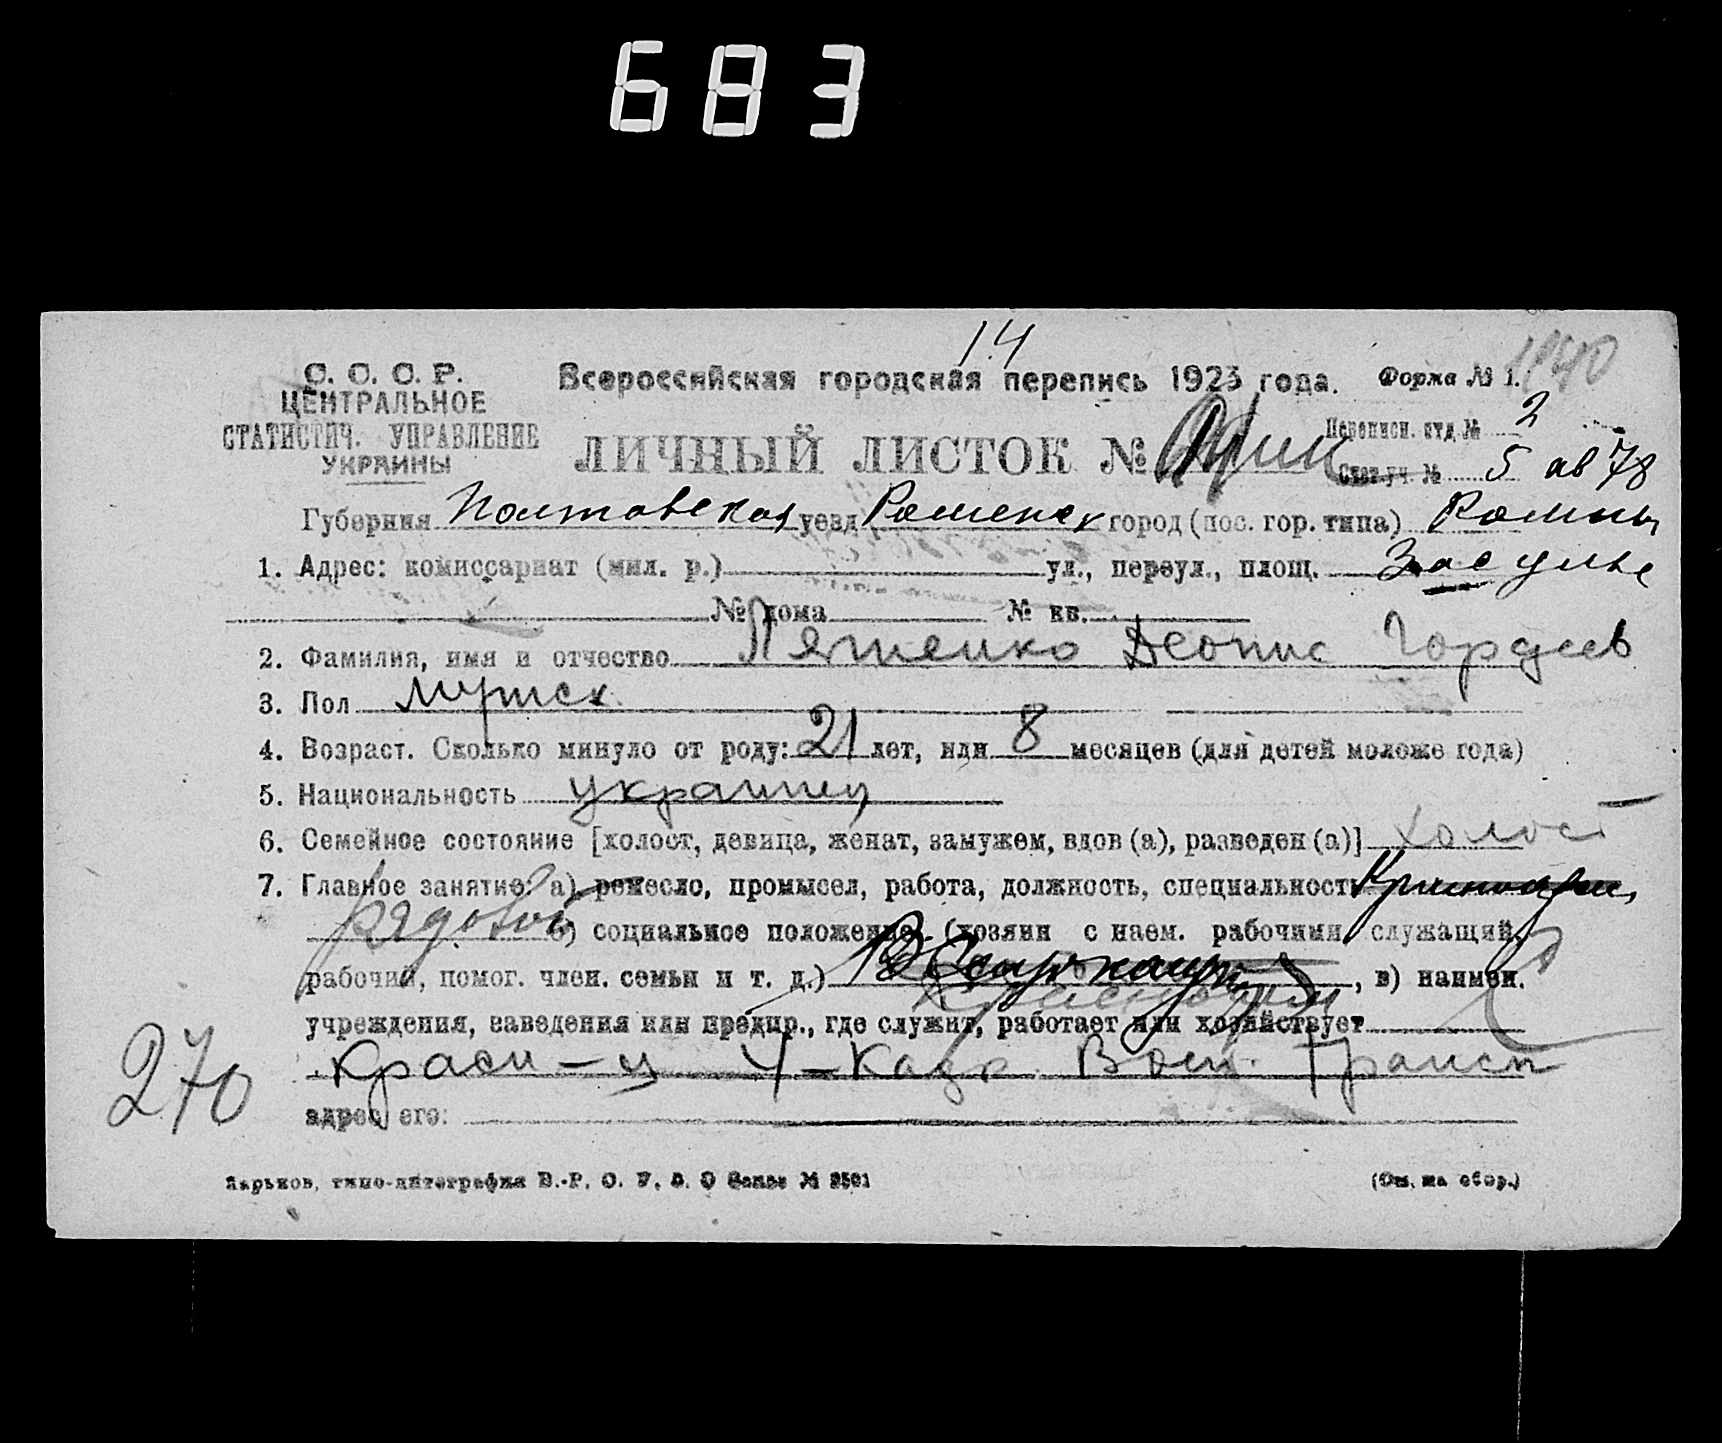 683
14
С. С. С. Р.
ЦЕНТРАЛЬНОЕ
СТАТИСТИЧ. УПРАВЛЕНИЕ
УКРАИНЫ
Всероссийская городская перепись 1923 года. Форма № 1.
ЛИЧНЫЙ ЛИСТОК №
Переписн. отд № 2
Счет. уч. № 5 ав 78
Губерния Полтавская уезд Роменск город (пос. гор. типа) Ромны
1. Адрес: комиссариат (мил. р.) ул., переул., площ. Засулье
№ дома № кв.
2. Фамилия, имя и отчество Гордеев
3. Пол мужск
4. Возраст. Сколько минуло от роду: 21 лет, или 8 месяцев (для детей моложе года)
5. Национальность украинец
6. Семейное состояние [холост, девица, женат, замужем, вдов (а), разведен (а)] холост
7. Главное занятие: а) ремесло, промысел, работа, должность, специальность
рядовой б) социальное положение (хозяин с наем. рабочими, служащий,
рабочий, помог. член. семьи и т. д.) , в) наимен.
учреждения, заведения или предпр., где служит, работает или хозяйствует
270
адрес его:
Харьков, типо-литография (См. на обор.)